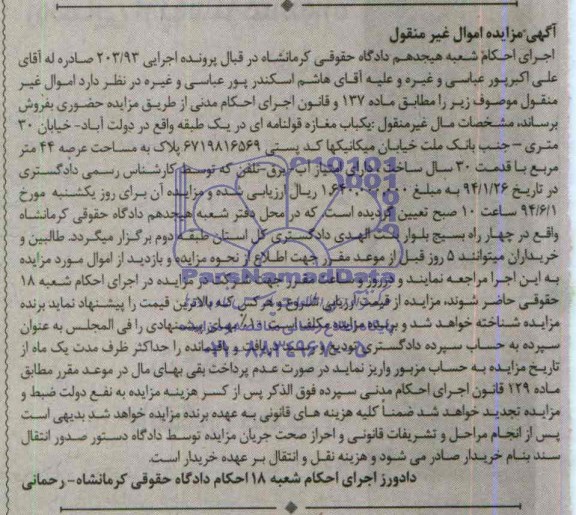 آگهی مزایده اموال غیر منقول
اجرای احکام شعبه هیجدهم دادگاه حقوقی کرمانشاه در قبال پرونده اجرایی ۲۰۳/۹۳ صادره له آقای
علی اکبرپور عباسی و غیره و علیه آقای هاشم اسکندر پور عباسی و غیره در نظر دارد اموال غیر
منقول موصوف زیر را مطابق ماده ۱۳۷ و قانون اجرای احکام مدنی از طریق مزایده حضوری بفروش
برساند، مشخصات مال غیرمنقول :یکباب مغازه قولنامه ای در یک طبقه واقع در دولت آباد- خیابان ۳۰
متری – جنب بانک ملت خیابان میکانیکها کد پستی ۶۷۱۹۸۱۶۵۶۹ پلاک به مساحت عرصه ۴۴ متر
مربع با قدمت ۳۰ سال ساخت دارای امتیاز آب -برق-تلفن که توسط کارشناس رسمی دادگستری
در تاریخ ۹۴/۱/۲۶ به مبلغ ریال ارزیابی شده و مزایده آن برای روز یکشنبه مورخ
۹۴/۶/۱ ساعت ۱۰ صبح تعیین گردیده است. که در محل دفتر شعبه هیجدهم دادگاه حقوقی کرمانشاه
واقع در چهار راه بسیج بلوار بنت الهدی دادگستری کل استان طبقه دوم برگزار میگردد. طالبین و
خریداران میتوانند ۵ روز قبل از موعد مقرر جهت اطلاع از نحوه مزایده و بازدید از اموال مورد مزایده
به این اجرا مراجعه نمایند و در روز و ساعت مقرر جهت شرکت در مزایده در اجرای احکام شعبه ۱۸
حقوقی حاضر شوند، مزایده از قیمت ارزیابی شروع و هر کس که بالاترین قیمت را پیشنهاد نماید برنده
مزایده شناخته خواهد شد و برنده مزایده مکلف است ۱۰٪ بهای پیشنهادی را فی المجلس به عنوان
سپرده به حساب سپرده دادگستری تودیع و باقیمانده را حداکثر ظرف مدت یک ماه از
تاریخ مزایده به حساب مزبور واریز نماید در صورت عدم پرداخت بقی بهای مال در موعد مقرر مطابق
ماده ۱۲۹ قانون اجرای احکام مدنی سپرده فوق الذکر پس از کسر هزینه مزایده به نفع دولت ضبط و
مزایده تجدید خواهد شد ضمناً کلیه هزینه های قانونی به عهده برنده مزایده خواهد شد بدیهی است
پس از انجام مراحل و تشریفات قانونی و احراز صحت جریان مزایده توسط دادگاه دستور صدور انتقال
سند بنام خریدار صادر می شود و هزینه نقل و انتقال بر عهده خریدار است.
دادورز اجرای احکام شعبه ۱۸ احکام دادگاه حقوقی کرمانشاه- رحمانی
ParsNamadData
۰۲۱-۸۸۳۴۹۶۷۰